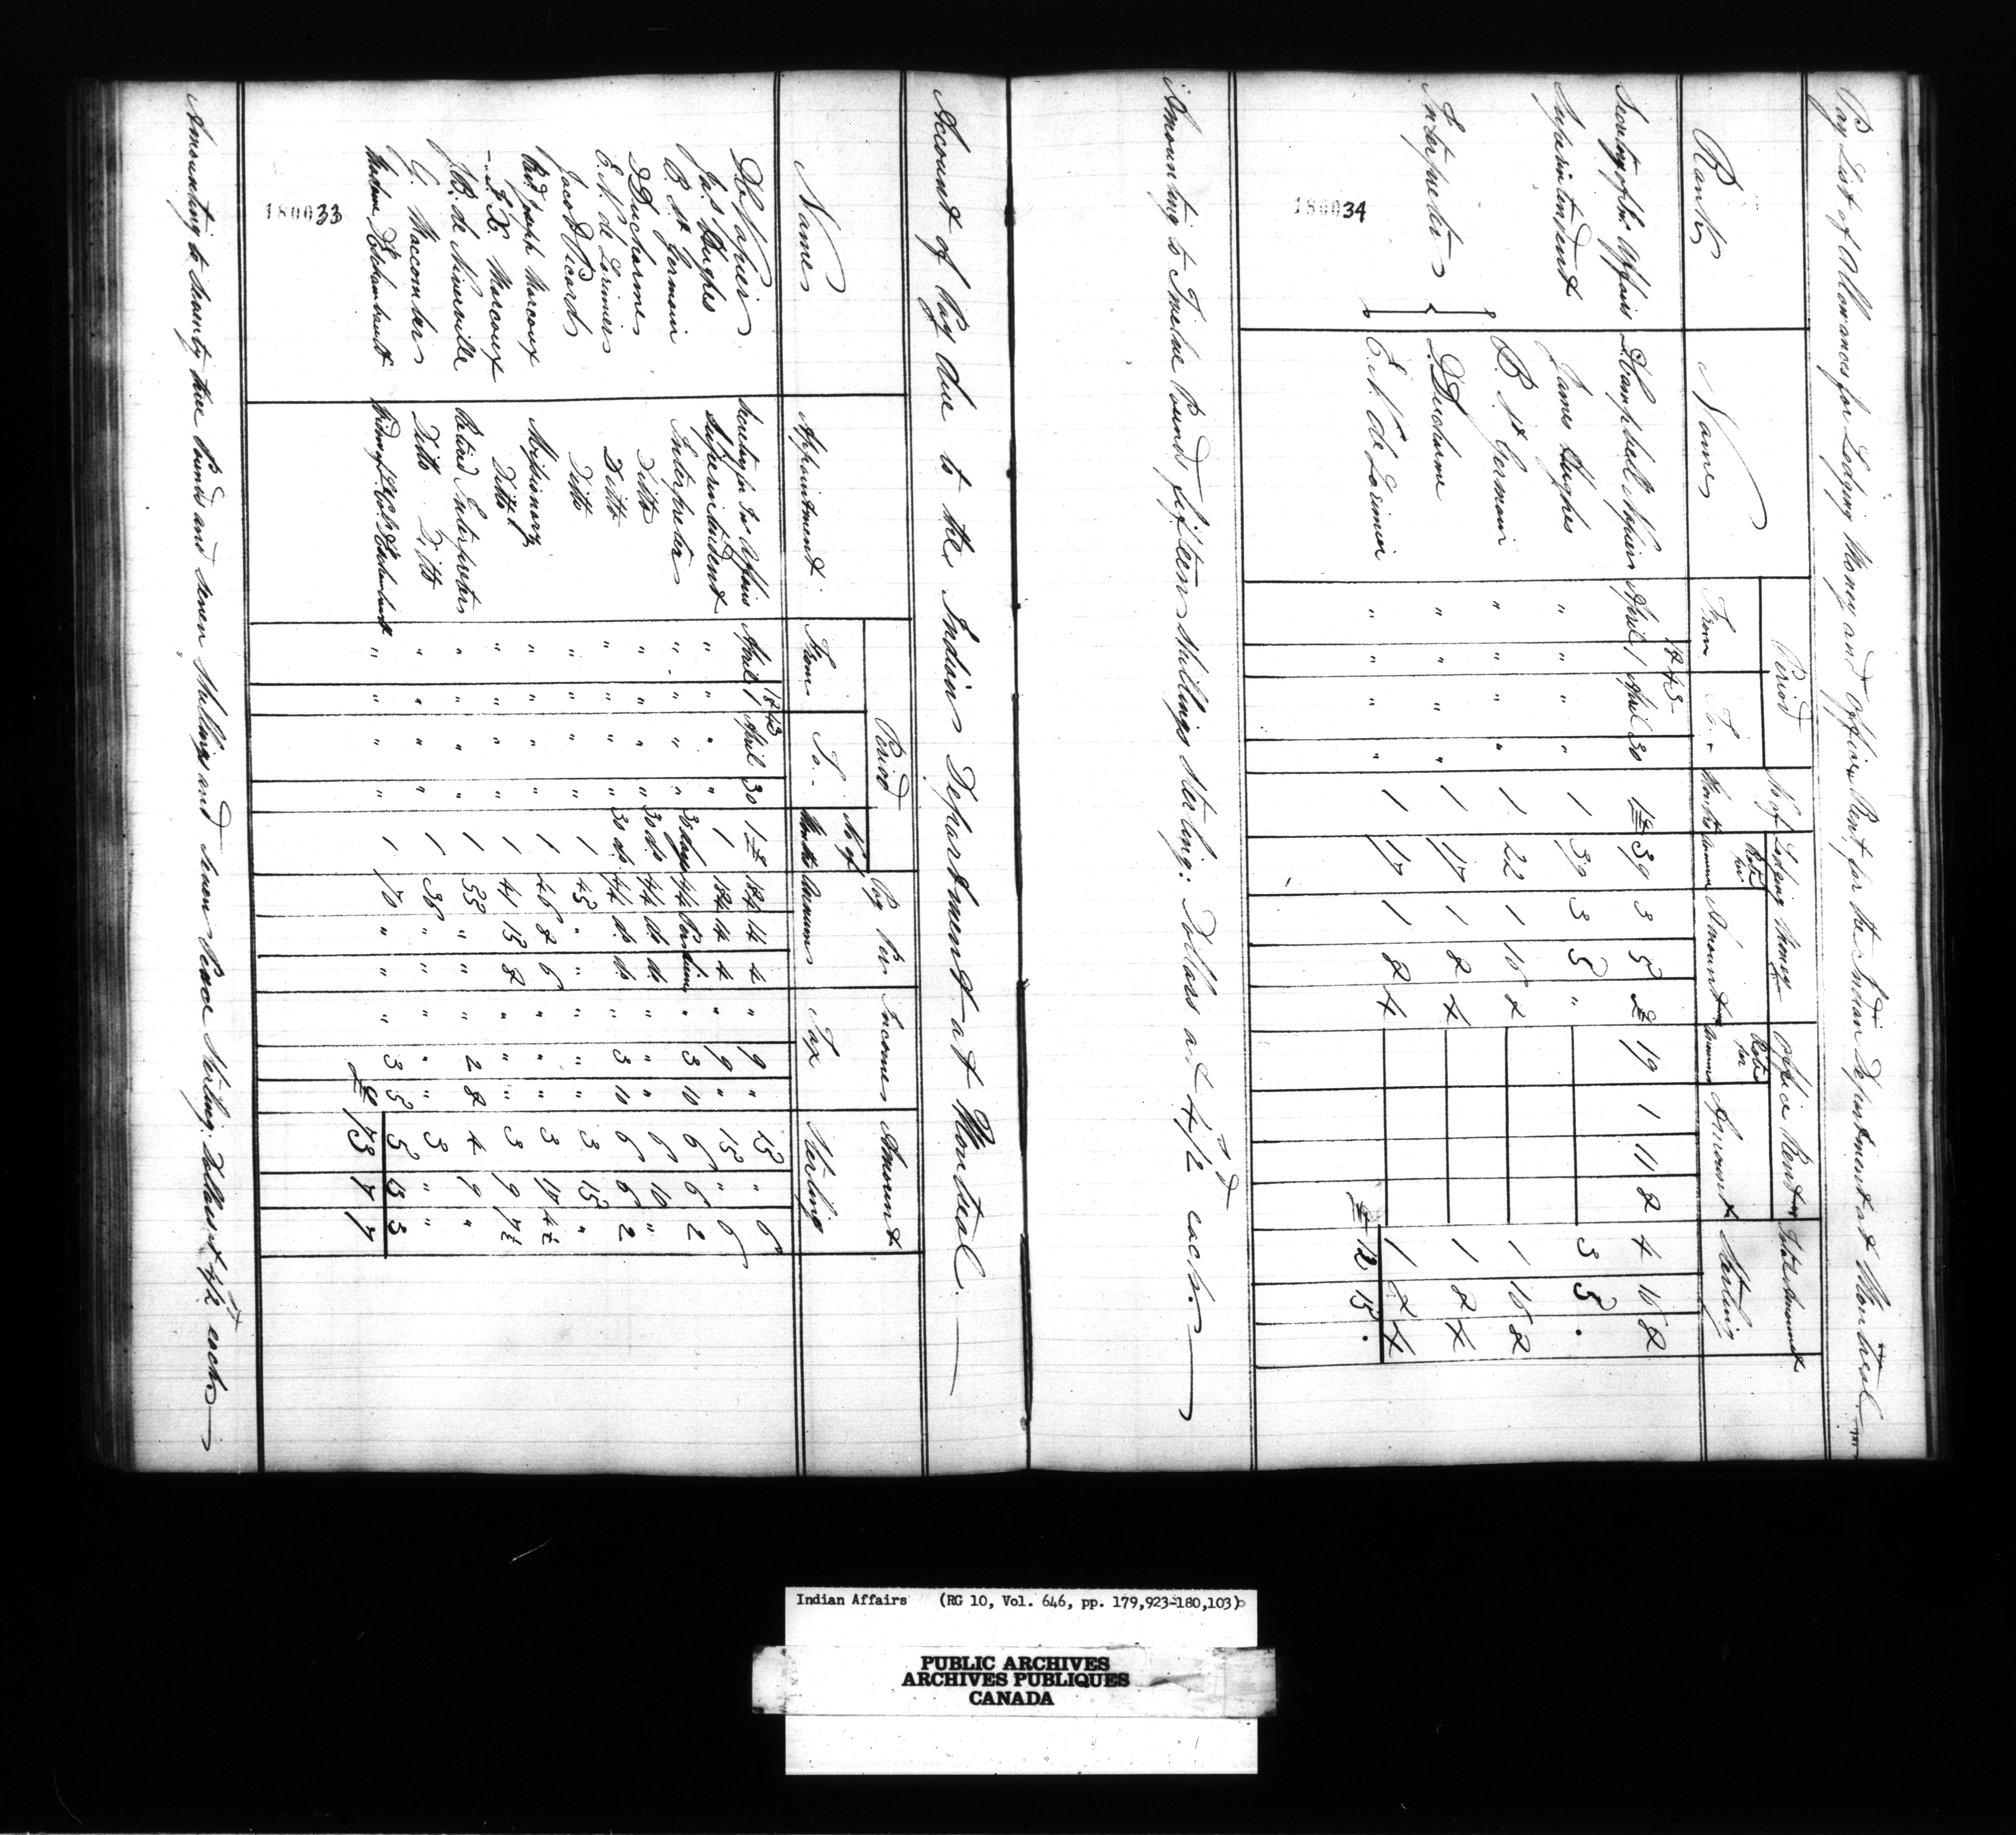 Account of Pay due to the Indian Department at Montreal.
Name Appointment Period From To No. of Months Pay per Annum Income Tax Amount Sterling
1843
D.C. Napier Secretary for In. Affairs April 1 April 30 1 £ 184 4 4 " 9 " 15 " 6
Jas. Hughes Superintendent " " " " 1 184 4 4 " 9 " 15 " 6
B. St. Germain Interpreter " " " " 30 days 4/4 per diem " 3 10 6 6 2
D. Ducharme Ditto " " " " 30 do. 4/4 do. " " " 6 10 "
E. N. de Lorimier Ditto " " " " 30 do. 4/4 do. " 3 10 6 6 2
Jacob Picard Ditto " " " " 1 45 " " " " " 3 15 "
Revd. Joseph Marcoux Missionary " " " " 1 46 8 6 " " " 3 17 4½
- F. X. Marcoux Ditto " " " " 1 41 15 8 " " " 3 9 7½
J. B. de Niverville Retired Interpreter " " " " 1 55 " " " 2 8 4 9 "
G. Maccomber Ditto Ditto " " " " 1 36 " " " " " 3 " "
Madame DeChambault Widow of Lt. Col. DeChambault " " " " 1 70 " " " 3 5 5 13 3
£ 73 7 7
Amounting to seventy three Pounds and seven Shillings and seven Pence Sterling. Dollars at 4/2 each
180033
Pay List of Allowances for Lodging Money and Office Rent for the Indian Department at Montreal
Rank Name Period From To No. of Months Lodging Money Rate per Annum Amount Office Rent Rate per Annum Amount Total Amount Sterling
1843
Secretary for In. Affairs D. Campbell Napier April 1 April 30 1 £ 39 3 5 2 £ 19 1 11 8 4 16 8
Superintendent James Hughes " " " " 1 39 3 5 " 3 5 .
Interpreter B. St. Germain " " " " 1 22 1 16 8 1 16 8
D. Ducharme " " " " 1 17 1 8 4 1 8 4
E. N. de Lorimier " " " " 1 17 1 8 4 1 8 4
£ 12 15 .
Amounting to Twelve Pounds fifteen Shillings Sterling: Dollars at 4/2 each.
180034
Indian Affairs (RG 10, Vol. 646, pp. 179,923-180,103)
PUBLIC ARCHIVES
ARCHIVES PUBLIQUES
CANADA